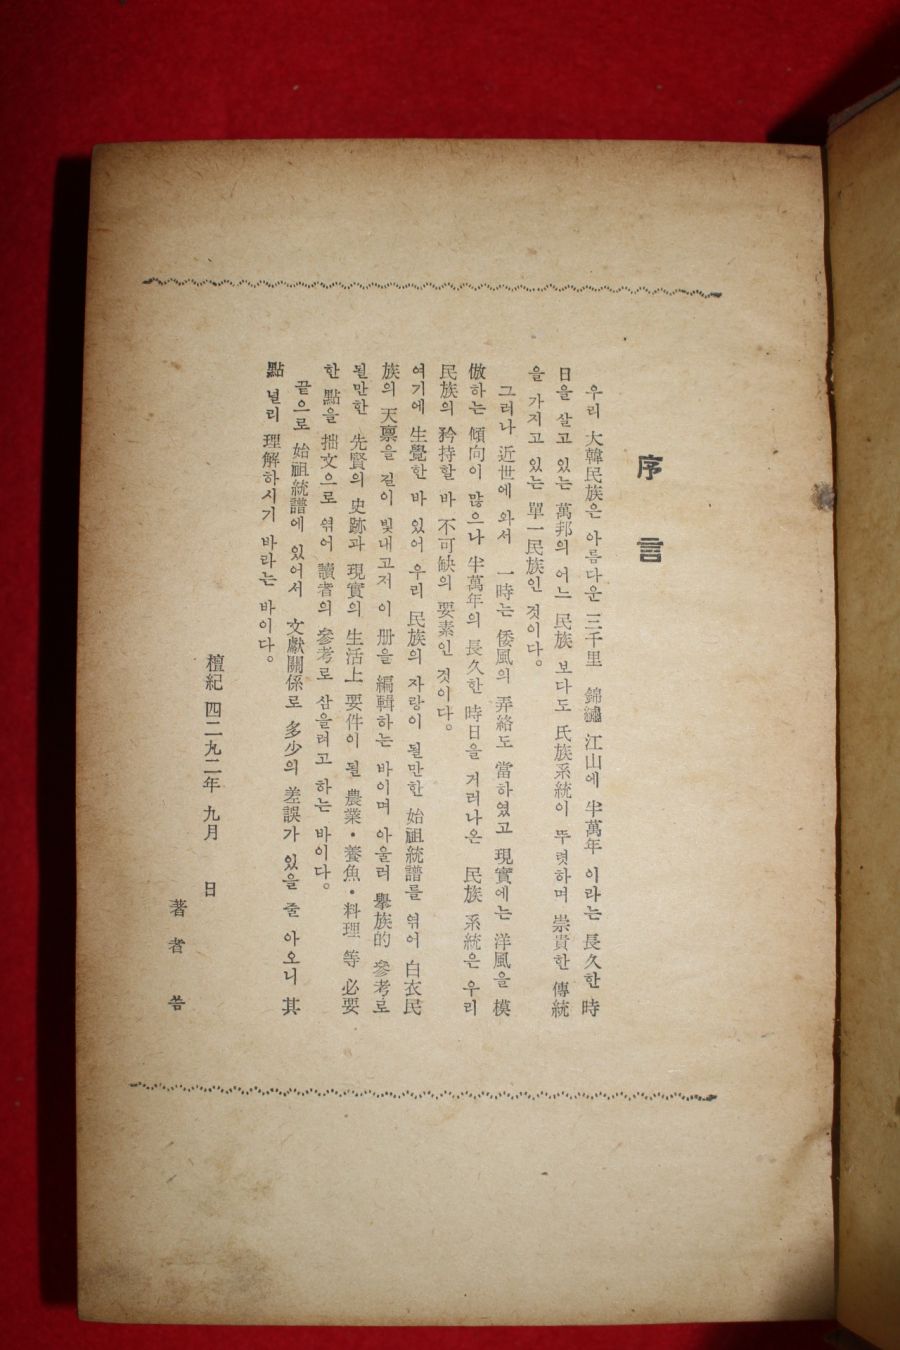 序言
우리 大韓民族은 아름다운 三千里 錦繡 江山에 半萬年 이라는 長久한 時
日을 살고 있는 萬邦의 어느 民族 보다도 氏族系統이 뚜렷하며 崇貴한 傳統
을 가지고 있는 單一民族인 것이다。
그러나 近世에 와서 一時는 倭風의 弄絡도 當하였고 現實에는 洋風을 模
倣하는 傾向이 많으나 半萬年의 長久한 時日을 거러나온 民族 系統은 우리
民族의 矜持할 바 不可缺의 要素인 것이다。
여기에 生覺한 바 있어 우리 民族의 자랑이 될만한 始祖統譜를 엮어 白衣民
族의 天稟을 길이 빛내고저 이 册을 編輯하는 바이며 아울러 擧族的 參考로
될만한 先賢의 史跡과 現實의 生活上 要件이 될 農業・養魚・料理 等 必要
한 點을 拙文으로 엮어 讀者의 參考로 삼을려고 하는 바이다。
끝으로 始祖統譜에 있어서 文獻關係로 多少의 差誤가 있을 줄 아오니 其
點 널리 理解하시기 바라는 바이다。
檀紀 四二九二年 九月 日
著者 씀